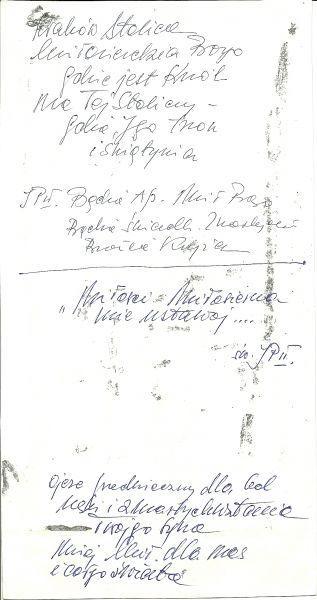 Kraków Stolica
Miłosierdzia Bożego
gdzie jest Król
Ma Tej Stolicy –
gdzie Jego tron
i świątynia
JPII. Bądźcie Ap. Mił Boż
Bądźcie Świadk.
"Miłości Miłosierna
nie ustawaj ....
św. JPII.
Ojcze Przedwieczny dla
Męki i zmartwychwstania
Twojego Syna
Miej Mił. dla nas
i całego świata